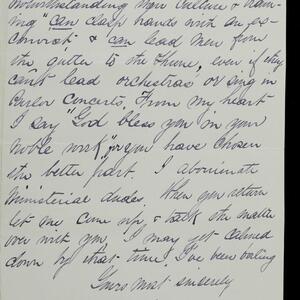 Notwithstanding their culture & train-
ing "can clasp hands with an ex-
convict & can lead men from
the gutter to the throne, even if they
can't lead orchestras or sing in
Parlor Concerts. From my heart
I say "God bless you in your
noble work," for you have chosen
the better part. I abominate
Ministerial dudes. When you return
let me come up & talk the matter
over with you. I may get calmed
down by that time. I've been boiling
Yours most sincerely